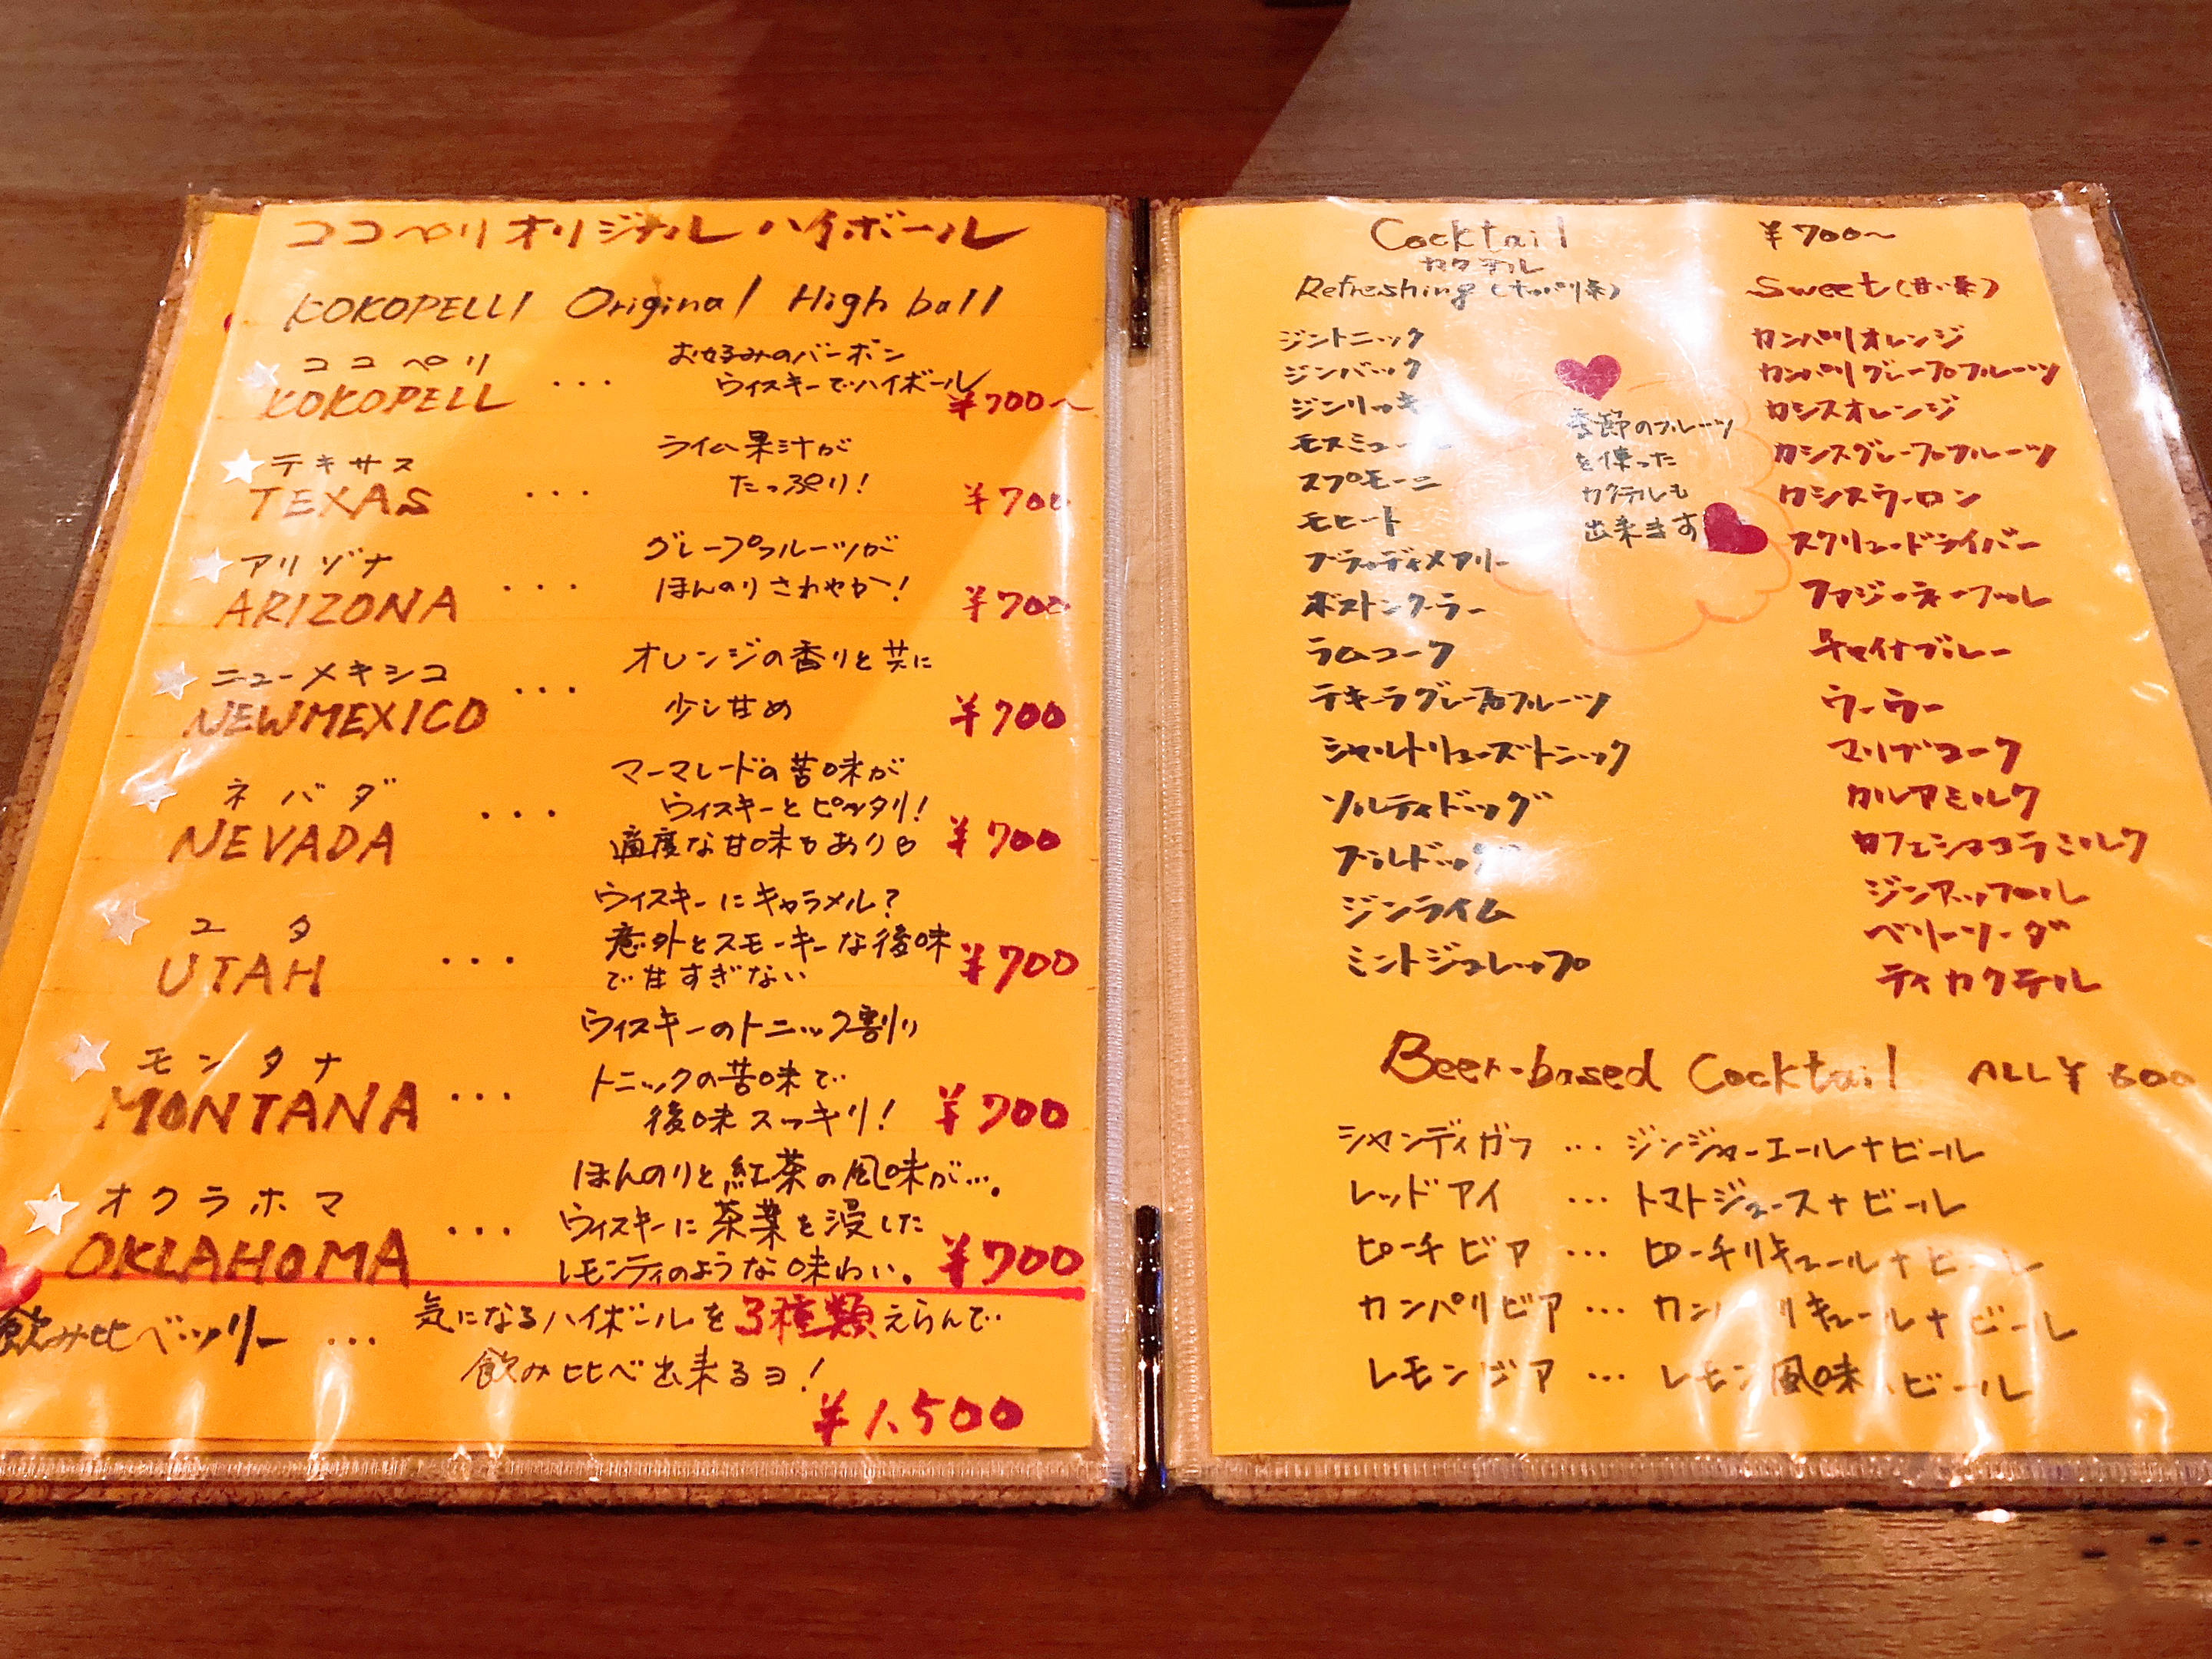 ココペリオリジナルハイボール
KOKOPELLI Original High ball
ココペリ
KOKOPELL ... お好みのバーボン
ウィスキーでハイボール
¥700〜
テキサス
TEXAS ... ライム果汁が
たっぷり!
¥700
アリゾナ
ARIZONA ... グレープフルーツが
ほんのりさわやか!
¥700
ニューメキシコ
NEWMEXICO ... オレンジの香りと共に
少し甘め
¥700
ネバダ
NEVADA ... マーマレードの苦味が
ウィスキーとピッタリ!
適度な甘味もあり
¥700
ユタ
UTAH ... ウィスキーにキャラメル?
意外とスモーキーな後味
で甘すぎない
¥700
モンタナ
MONTANA ... ウィスキーのトニック割り
トニックの苦味で
後味スッキリ!
¥700
オクラホマ
OKLAHOMA ... ほんのりと紅茶の風味が…。
ウィスキーに茶葉を浸した
レモンティのような味わい。
¥700
飲み比べツリー ... 気になるハイボールを3種類えらんで
飲み比べ出来るヨ!
¥1,500
Cocktail ¥700〜
カクテル
Refreshing (サッパリ系)
ジントニック
ジンバック
ジンリッキ
モスミュー
スプモーニ
モヒート
ブラッディメアリー
ボストンクーラー
ラムコーク
テキーラグレープフルーツ
シャルトリューズトニック
ソルティドッグ
ブルドッグ
ジンライム
ミントジュレップ
季節のフルーツ
を使った
カクテルも
出来ます
Sweet (甘い系)
カンパリオレンジ
カンパリグレープフルーツ
カシスオレンジ
カシスグレープフルーツ
カシスウーロン
スクリュードライバー
ファジーネーブル
チャイナブルー
ウーラー
マリブコーク
カルアミルク
カフェショコラミルク
ジンアップル
ベリーソーダ
ティカクテル
Beer-based Cocktail ALL ¥600
シャンディガフ ... ジンジャーエール+ビール
レッドアイ ... トマトジュース+ビール
ピーチビア ... ピーチリキュール+ビール
カンパリビア ... カンパリキュール+ビール
レモンビア ... レモン風味 ビール